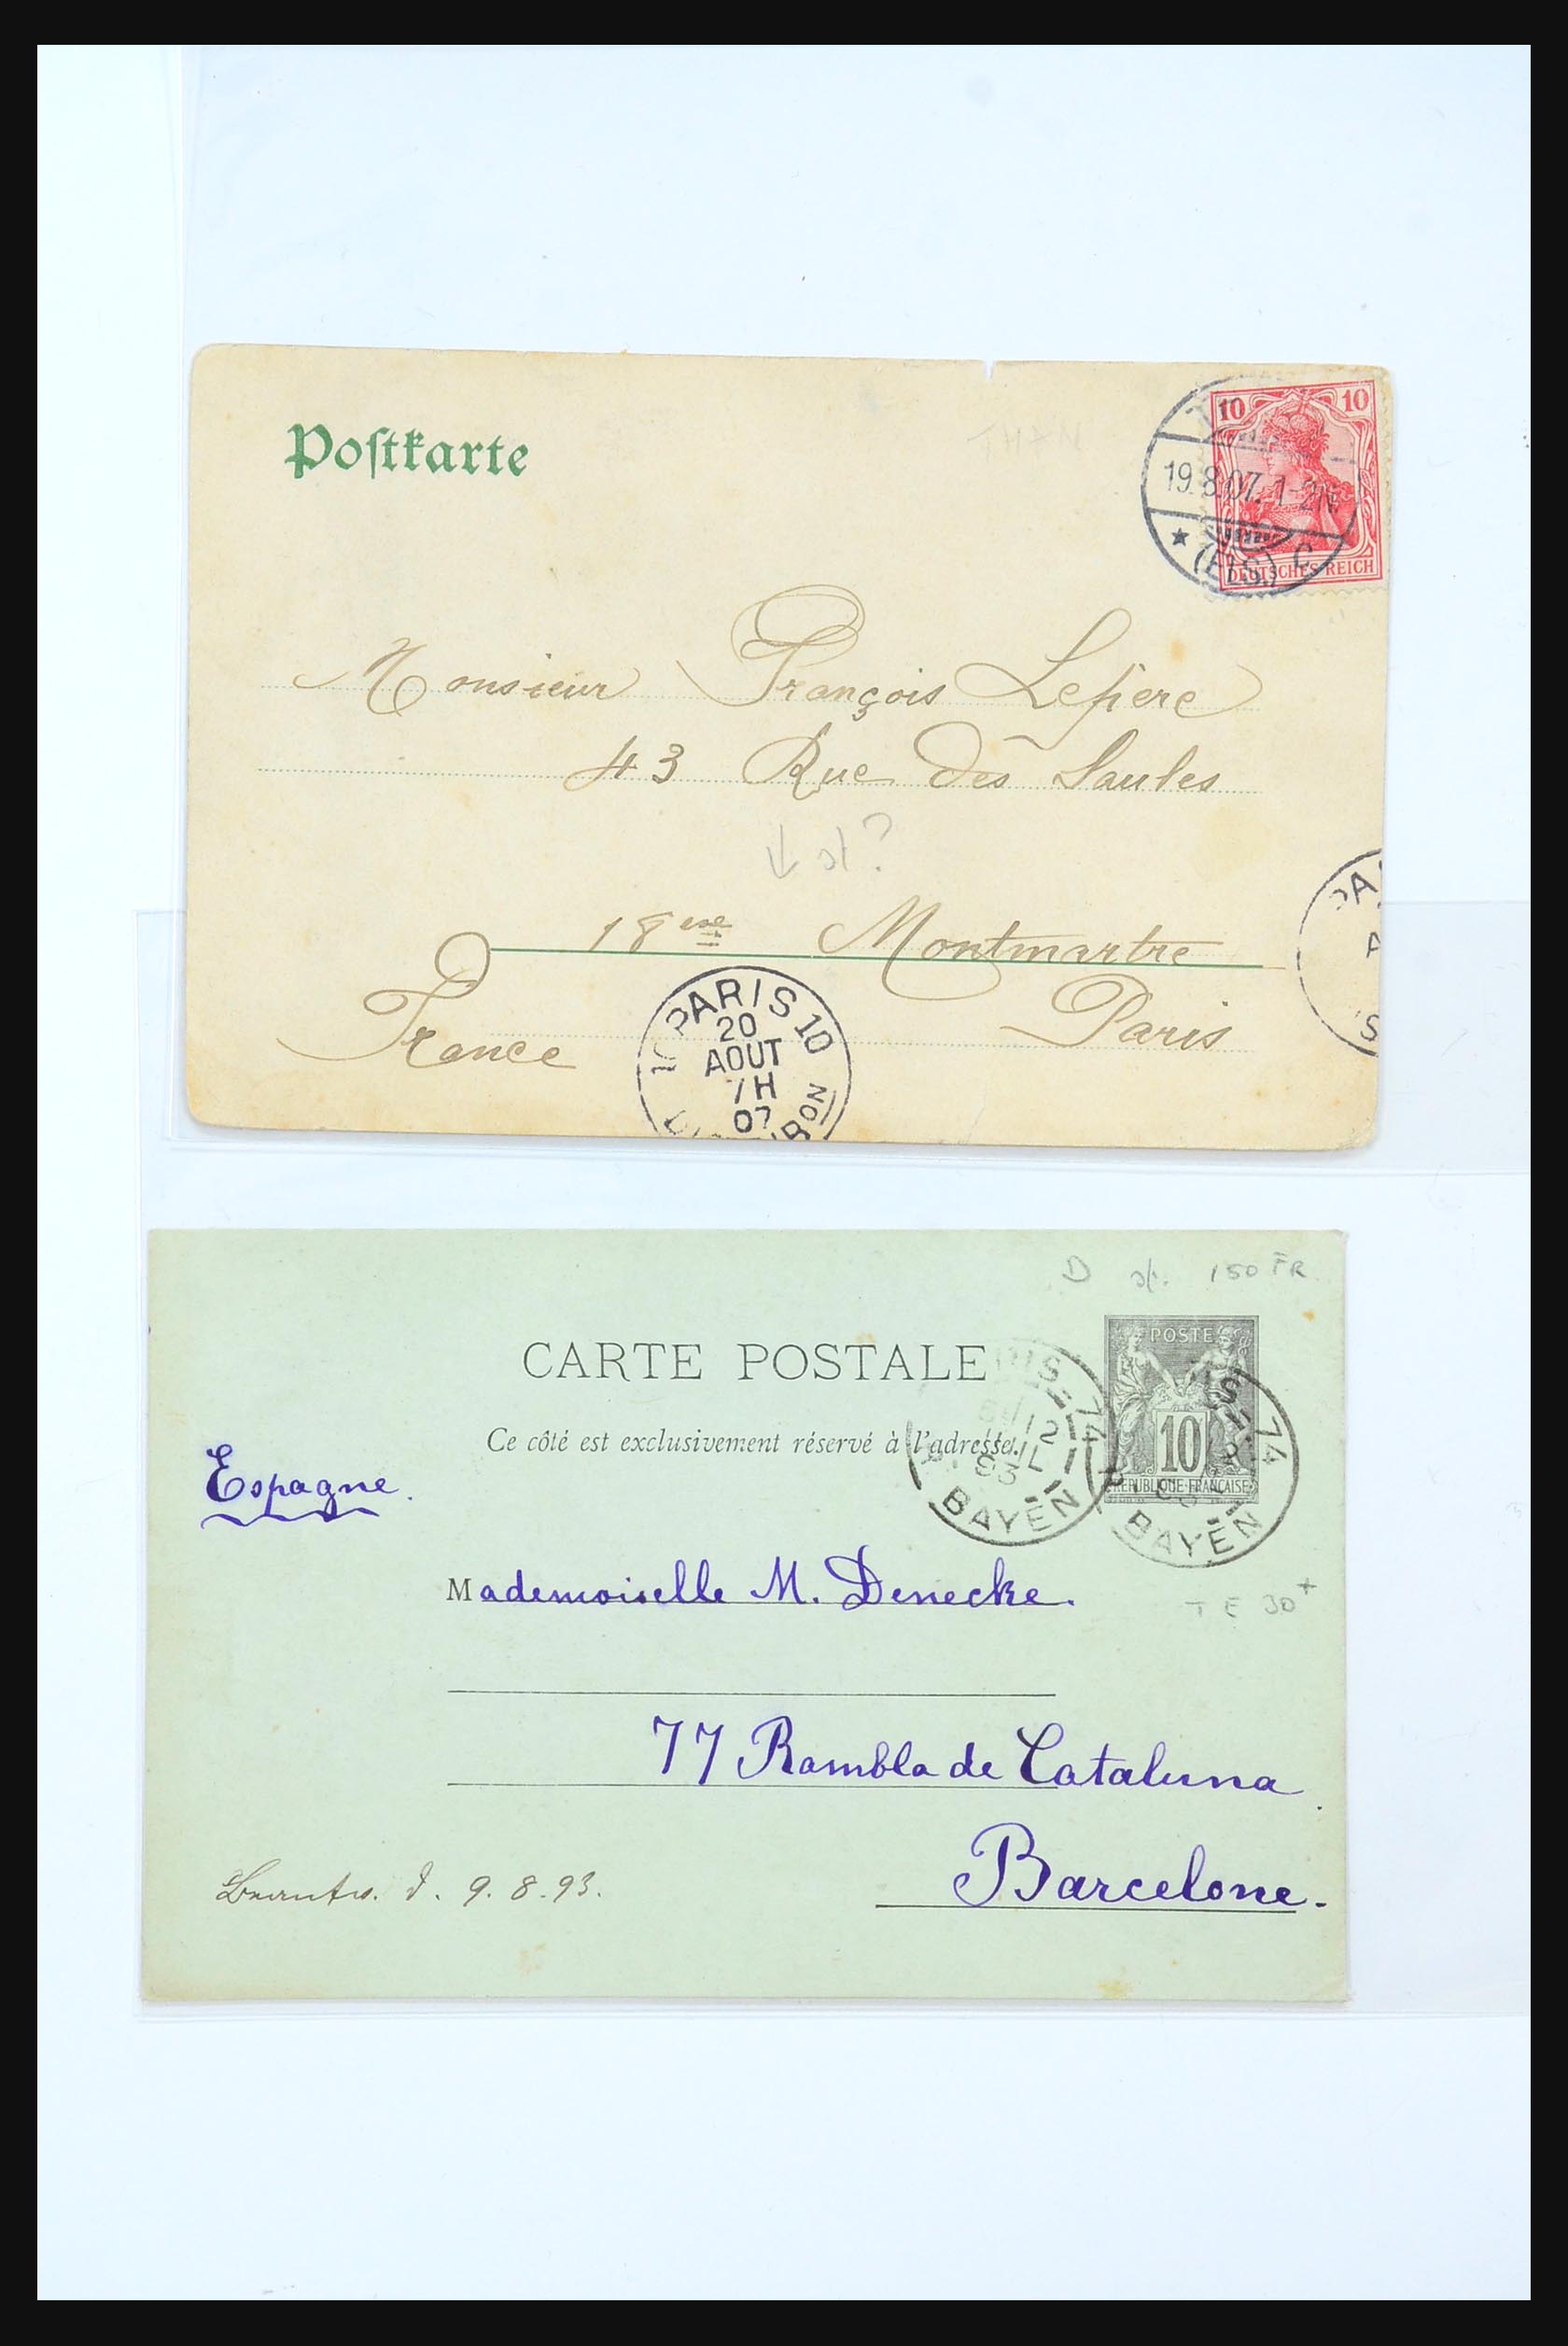 Postkarte
THAN
10 10
19.8.07. 1-2N.
(ELS.) C
DEUTSCHES REICH
Monsieur François Lepère
43 Rue des Saules
?
18eme Montmartre
France Paris
PARIS 10
20
AOUT
7H
07
D 150 FR
CARTE POSTALE
POSTE
10
REPUBLIQUE FRANÇAISE
Ce côté est exclusivement réservé à l'adresse.
74
12
93
BAYEN
74
BAYEN
Espagne.
Mademoiselle M. Denecke.
T E 30+
77 Rambla de Cataluna
Barcelone.
9. 8. 93.